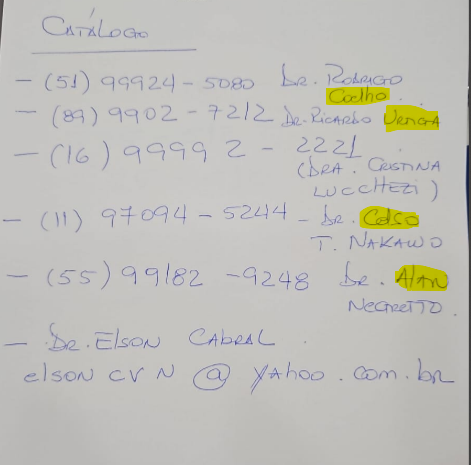 CATÁLOGO
- (51) 99924-5080 Dr. RODRIGO
Coelho.
- (89) 9902-7212 Dr. RICARDO
- (16) 99992-2221
(DRA. CRISTINA
LUCCHEZI)
- (11) 97094-5244 - Dr. Celso
T. NAKAWO
- (55) 99182-9248 Dr. Alan
NEGRETTO.
- Dr. Elson CABRAL.
elson cv N @ yahoo.com.br